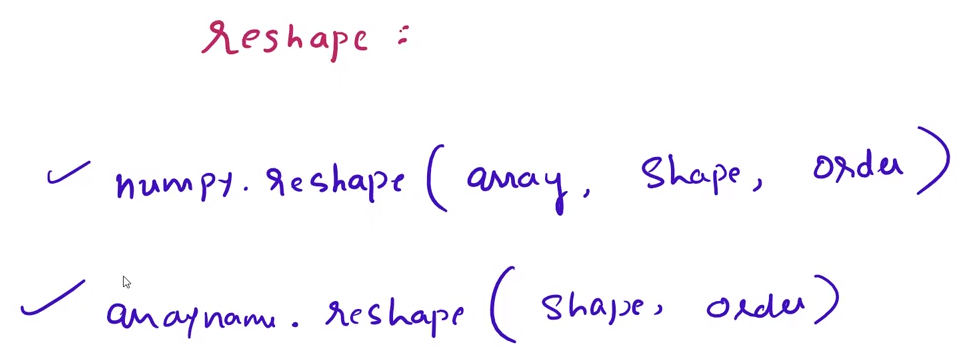 reshape :
numpy. reshape ( array, shape, order )
arrayname. reshape ( shape, order )